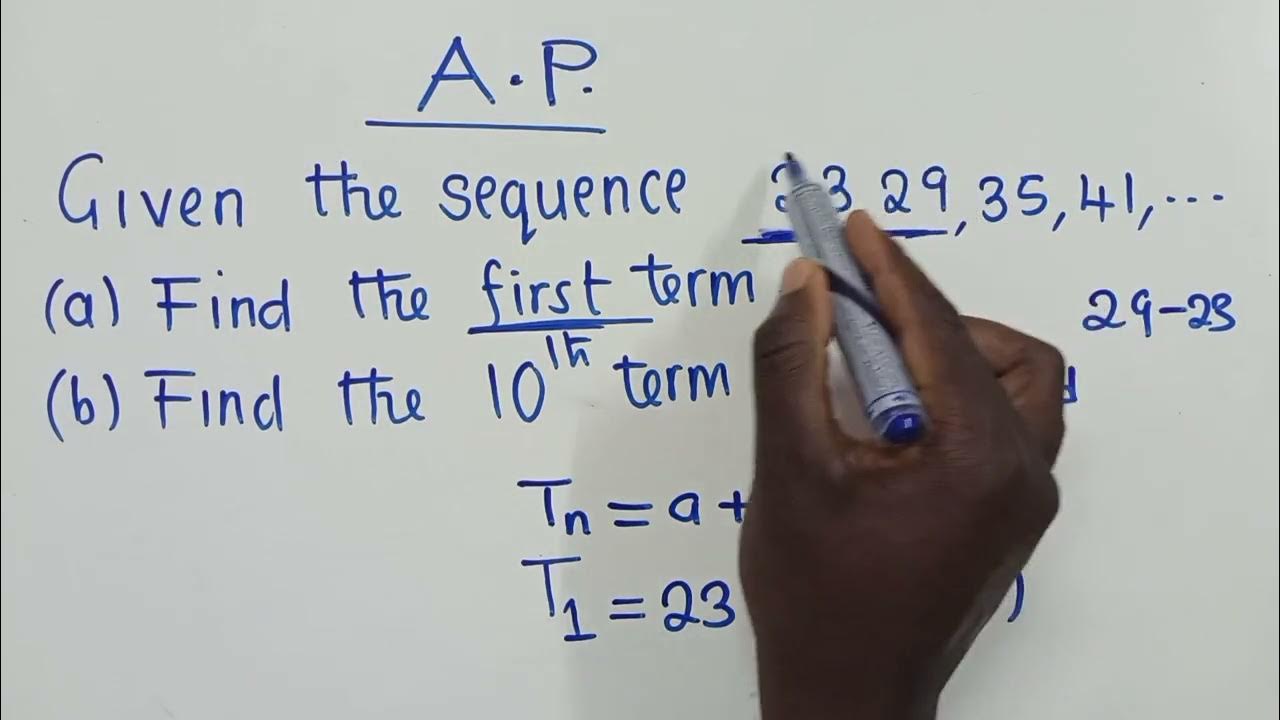 A.P.
Given the sequence 23 29, 35, 41, ...
(a) Find the first term
29-23
(b) Find the 10th term
Tn = a +
T1 = 23 )